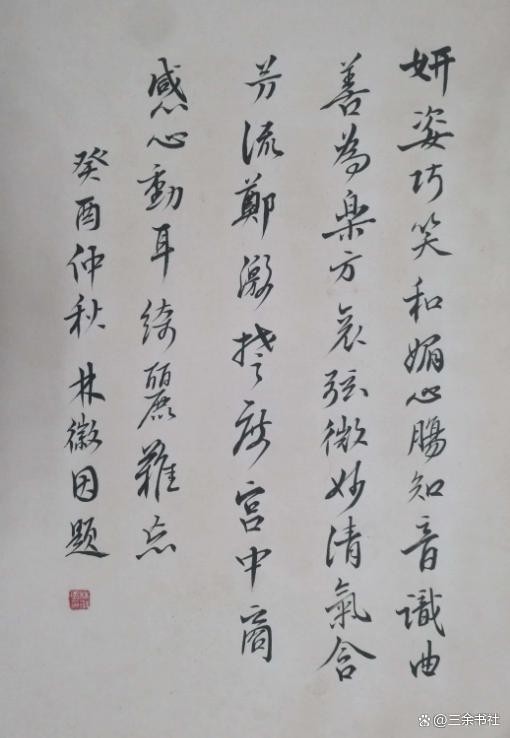 妍姿巧笑和媚心腸知音識曲
善為楽方哀弦微妙清氣含
芳流鄭激楚度宮中商
感心動耳綺麗難忘
癸酉仲秋 林徽因題
三余书社